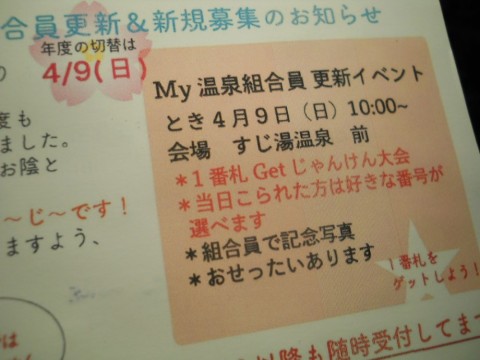 合員更新＆新規募集のお知らせ
年度の切替は
4/9(日)
度も
ました。
お陰と
〜じ〜です！
ますよう、
My 温泉組合員 更新イベント
とき４月９日（日）10:00~
会場　すじ湯温泉　前
＊１番札 Get じゃんけん大会
＊当日こられた方は好きな番号が
選べます
＊組合員で記念写真
＊おせったいあります
１番札を
ゲットしよう！
以降も随時受付してま